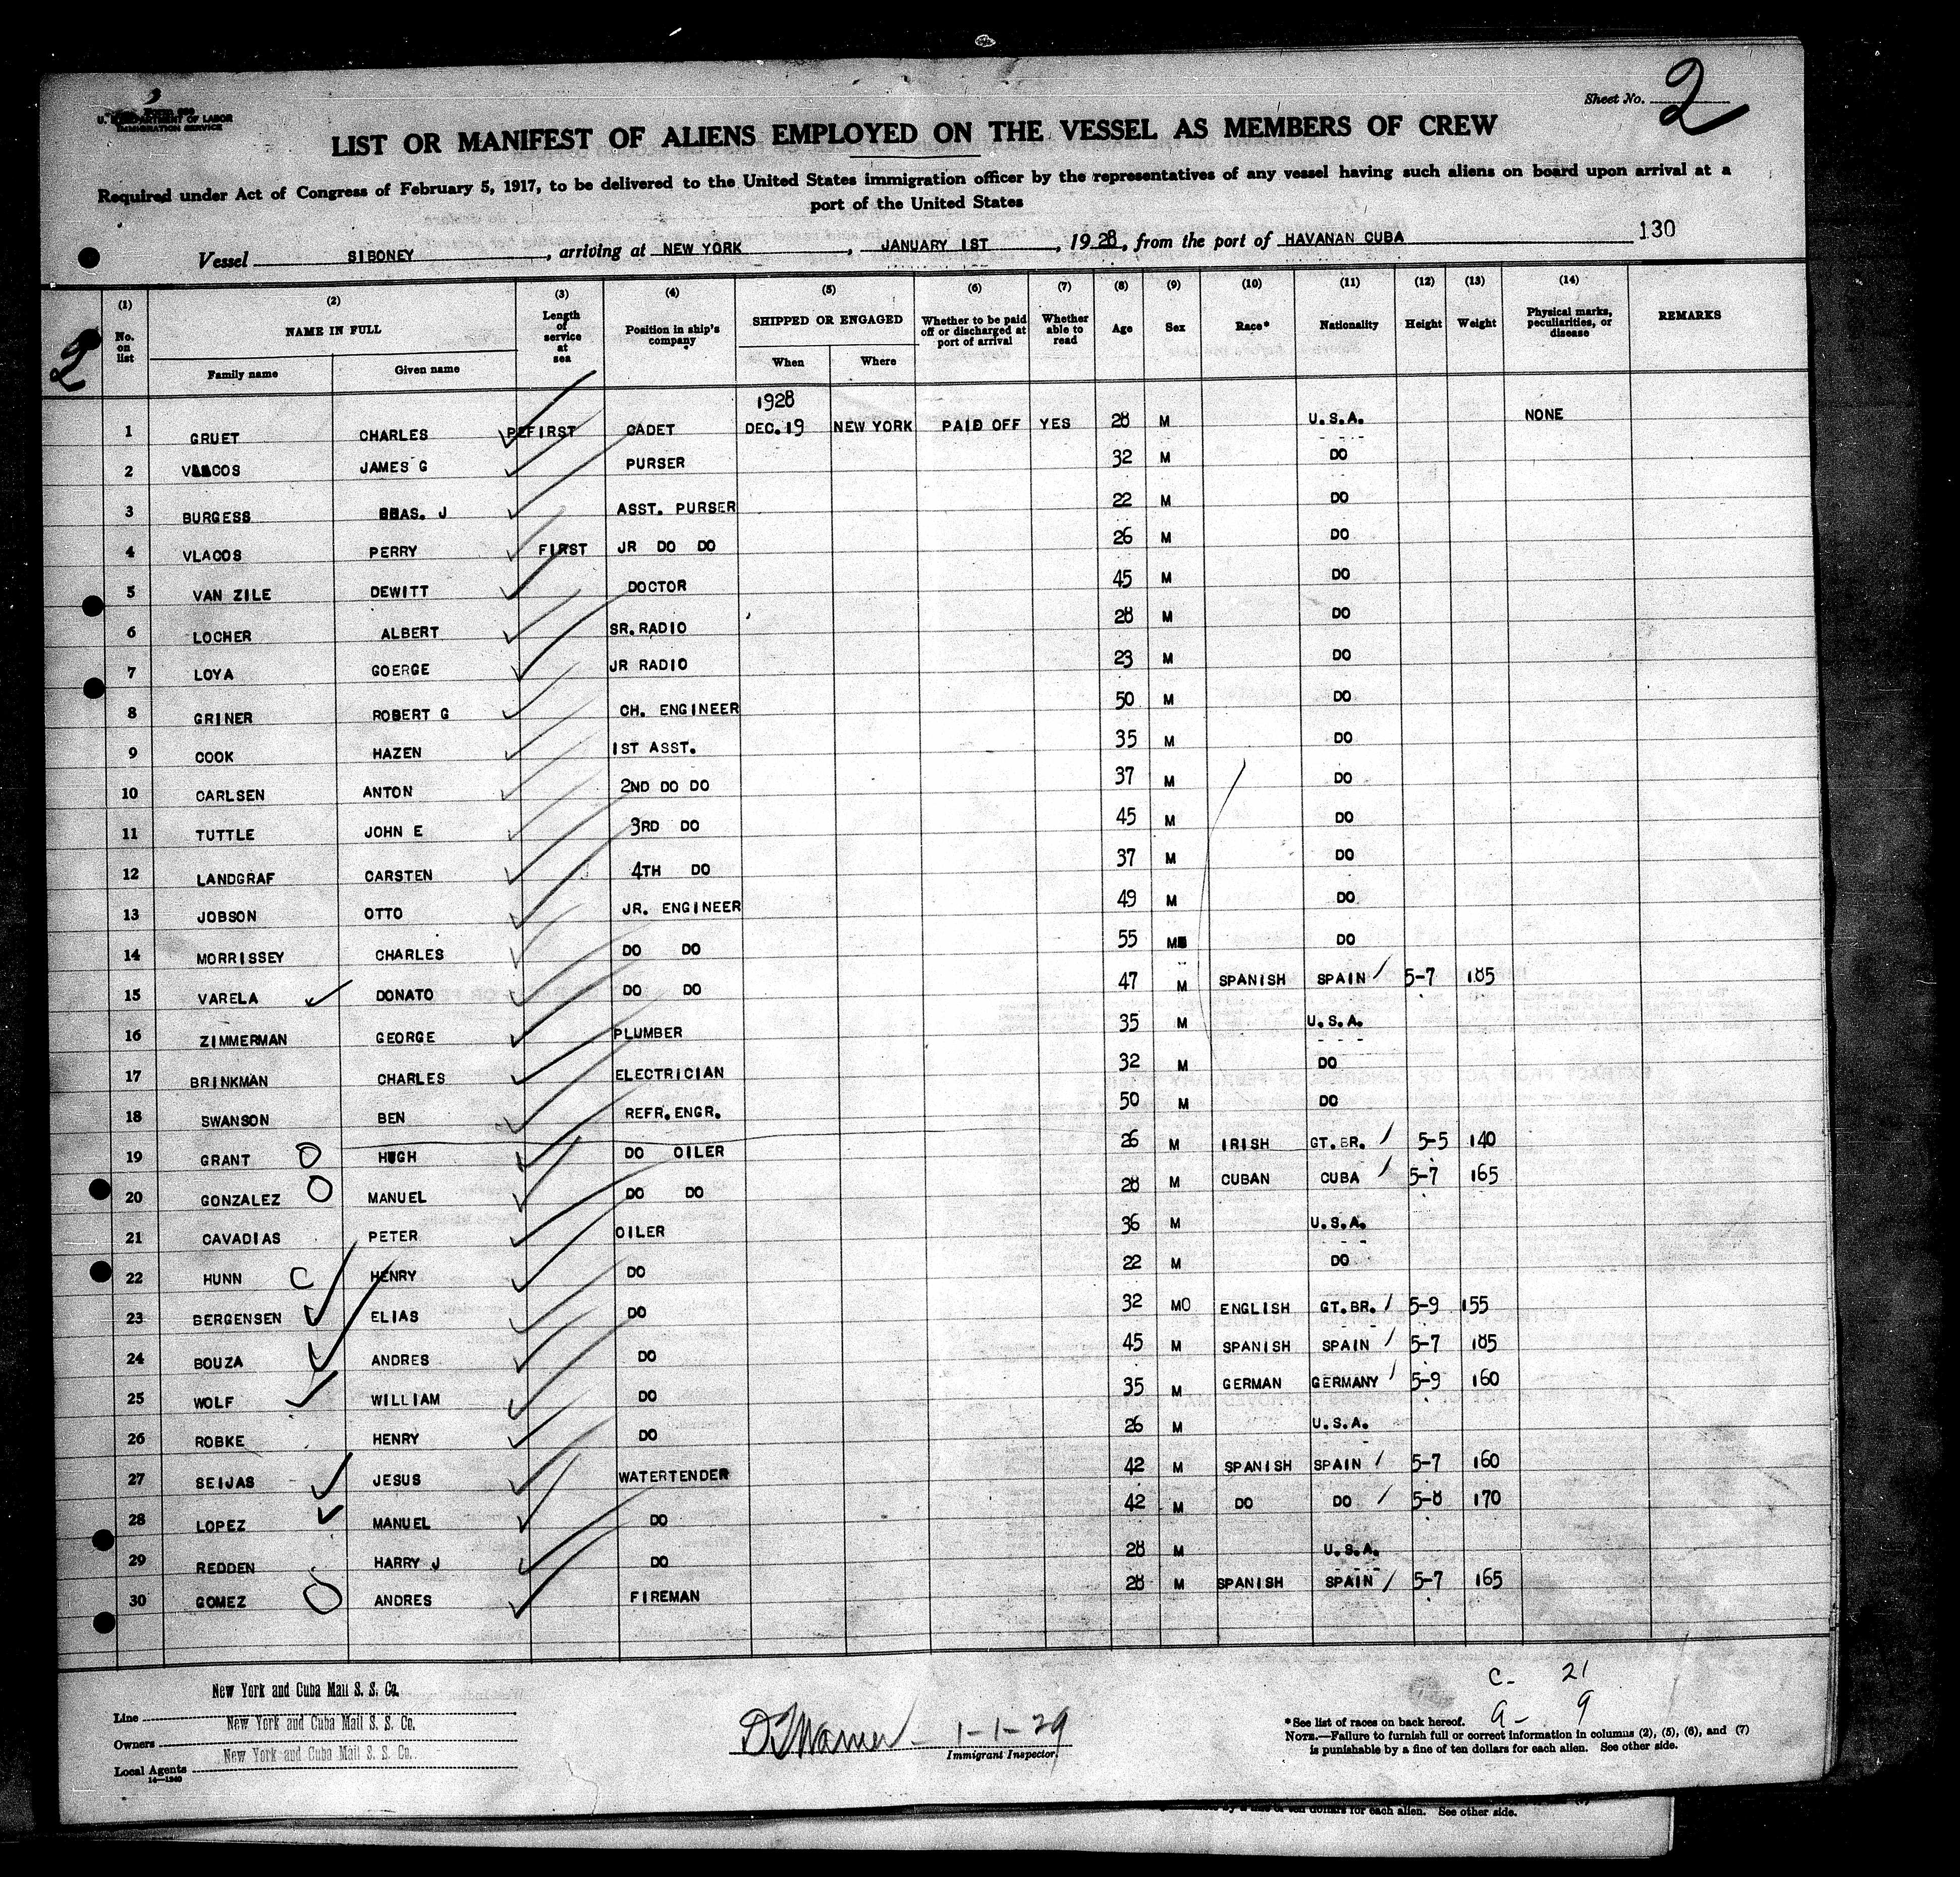 U. S. DEPARTMENT OF LABOR
IMMIGRATION SERVICE
Sheet No. 2
LIST OR MANIFEST OF ALIENS EMPLOYED ON THE VESSEL AS MEMBERS OF CREW
Required under Act of Congress of February 5, 1917, to be delivered to the United States immigration officer by the representatives of any vessel having such aliens on board upon arrival at a
port of the United States
Vessel SIBONEY, arriving at NEW YORK, JANUARY 1ST, 1928, from the port of HAVANAN CUBA 130
2
(1) No. on list (2) NAME IN FULL Family name Given name (3) Length of service at sea (4) Position in ship's company (5) SHIPPED OR ENGAGED When Where (6) Whether to be paid off or discharged at port of arrival (7) Whether able to read (8) Age (9) Sex (10) Race* (11) Nationality (12) Height (13) Weight (14) Physical marks, peculiarities, or disease REMARKS
1928
1 GRUET CHARLES FIRST CADET DEC. 19 NEW YORK PAID OFF YES 28 M U.S.A. NONE
2 JAMES G PURSER 32 M DO
3 BURGESS J ASST. PURSER 22 M DO
4 VLACOS PERRY FIRST JR DO DO 26 M DO
5 VAN ZILE DEWITT DOCTOR 45 M DO
6 LOCHER ALBERT SR. RADIO 28 M DO
7 LOYA GOERGE JR RADIO 23 M DO
8 GRINER ROBERT G CH. ENGINEER 50 M DO
9 COOK HAZEN 1ST ASST. 35 M DO
10 CARLSEN ANTON 2ND DO DO 37 M DO
11 TUTTLE JOHN E 3RD DO 45 M DO
12 LANDGRAF CARSTEN 4TH DO 37 M DO
13 JOBSON OTTO JR. ENGINEER 49 M DO
14 MORRISSEY CHARLES DO DO 55 M DO
15 VARELA DONATO DO DO 47 M SPANISH SPAIN 5-7 185
16 ZIMMERMAN GEORGE PLUMBER 35 M U.S.A.
17 BRINKMAN CHARLES ELECTRICIAN 32 M DO
18 SWANSON BEN REFR. ENGR. 50 M DO
19 GRANT HUGH DO OILER 26 M IRISH GT. BR. 5-5 140
20 GONZALEZ MANUEL DO DO 28 M CUBAN CUBA 5-7 165
21 CAVADIAS PETER OILER 36 M U.S.A.
22 HUNN C HENRY DO 22 M DO
23 BERGENSEN ELIAS DO 32 MO ENGLISH GT. BR. 5-9 155
24 BOUZA ANDRES DO 45 M SPANISH SPAIN 5-7 185
25 WOLF WILLIAM DO 35 M GERMAN GERMANY 5-9 160
26 ROBKE HENRY DO 26 M U.S.A.
27 SEIJAS JESUS WATERTENDER 42 M SPANISH SPAIN 5-7 160
28 LOPEZ MANUEL DO 42 M DO DO 5-8 170
29 REDDEN HARRY J DO 28 M U.S.A.
30 GOMEZ ANDRES FIREMAN 28 M SPANISH SPAIN 5-7 165
C- 21
a- 9
New York and Cuba Mail S. S. Co.
Line
New York and Cuba Mail S. S. Co.
Owners
New York and Cuba Mail S. S. Co.
Local Agents
14—1240
1-1-29
Immigrant Inspector.
*See list of races on back hereof.
NOTE.—Failure to furnish full or correct information in columns (2), (5), (6), and (7)
is punishable by a fine of ten dollars for each alien. See other side.
ten dollars for each alien. See other side.